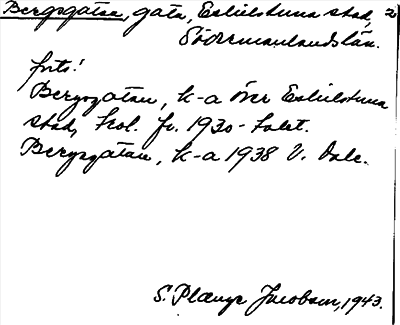 Bergsgatan, gata, Eskilstuna stad, 2
Södermanlands län.
forts!
Bergsgatan, k-a över Eskilstuna
stad, kol. fr. 1930-talet.
Bergsgatan, k-a 1938 V. Dale.
S. Plænge Jacobson, 1943.